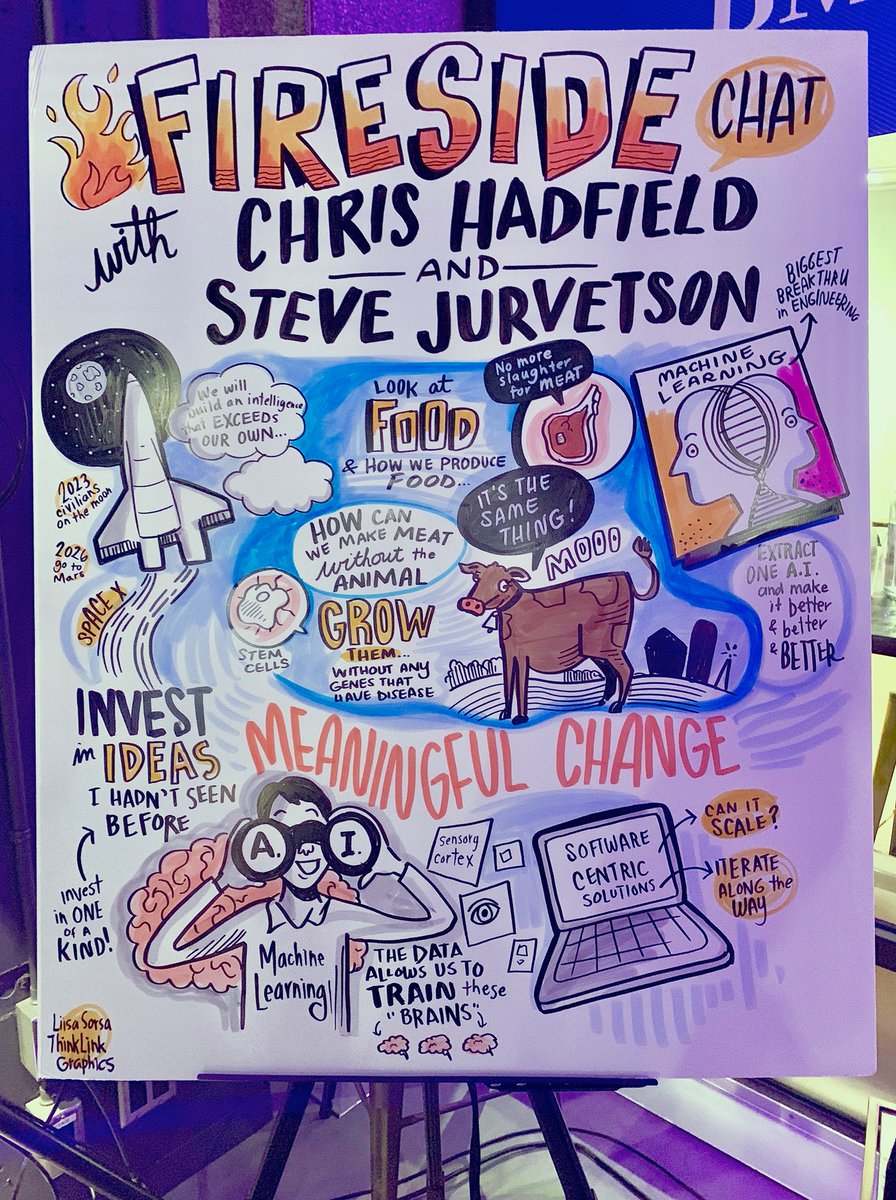 BM
FIRESIDE
CHAT
with
CHRIS HADFIELD
AND
STEVE JURVETSON
BIGGEST
BREAKTHRU
in ENGINEERING
MACHINE
LEARNING
We will
build an intelligence
that EXCEEDS
OUR OWN...
LOOK at
FOOD
& HOW WE PRODUCE
FOOD...
No more
slaughter
for MEAT
2023
civilians
on the moon
2026
go to
Mars
SPACE X
HOW CAN
WE MAKE MEAT
without the
ANIMAL
IT'S THE
SAME
THING!
MOOO
STEM
CELLS
GROW
THEM...
WITHOUT ANY
GENES THAT
HAVE DISEASE
EXTRACT
ONE A.I.
and make
it better
& better
& BETTER
INVEST
in IDEAS
I HADN'T SEEN
BEFORE
invest
in ONE
OF A
KIND!
MEANINGFUL CHANGE
A. I.
Machine
Learning
sensory
cortex
THE DATA
ALLOWS US TO
TRAIN these
"BRAINS"
SOFTWARE
CENTRIC
SOLUTIONS
CAN IT
SCALE?
ITERATE
ALONG the
WAY
Liisa Sorsa
ThinkLink
Graphics